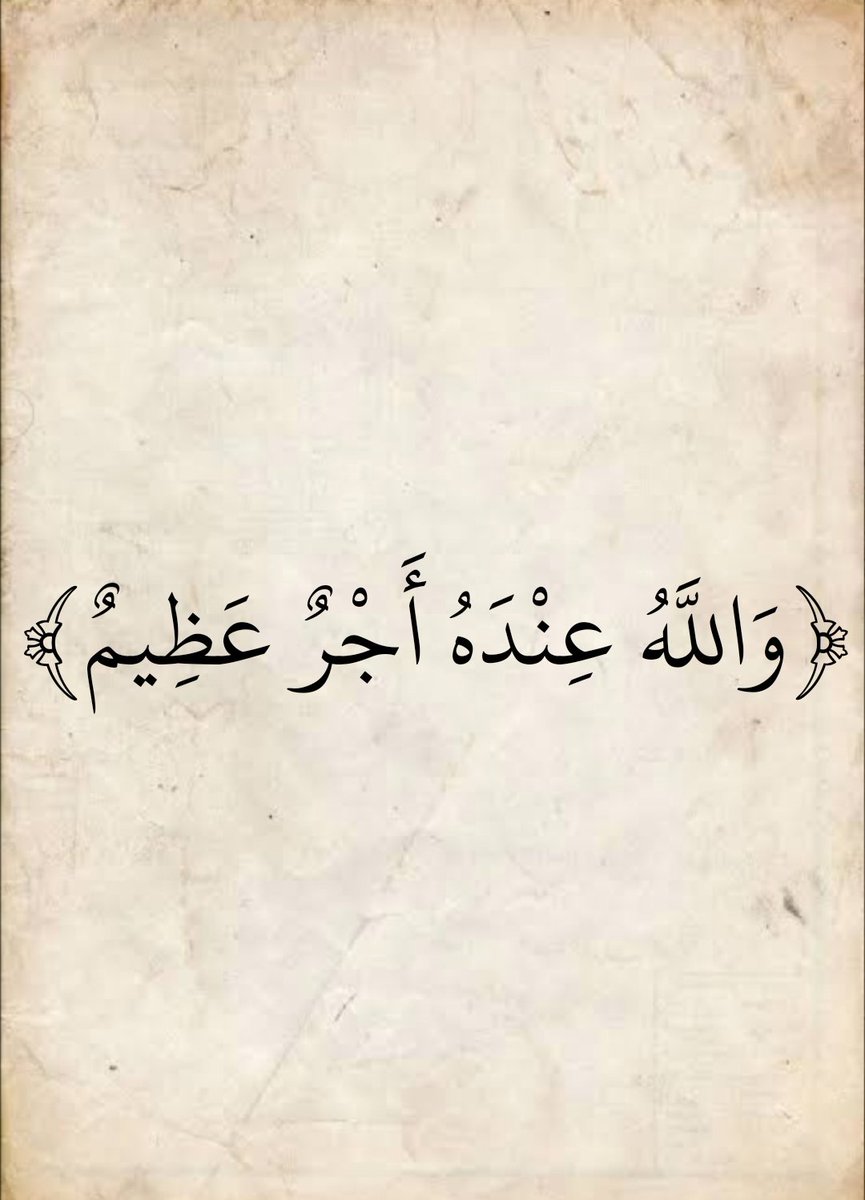 ﴿وَاللَّهُ عِنْدَهُ أَجْرٌ عَظِيمٌ﴾